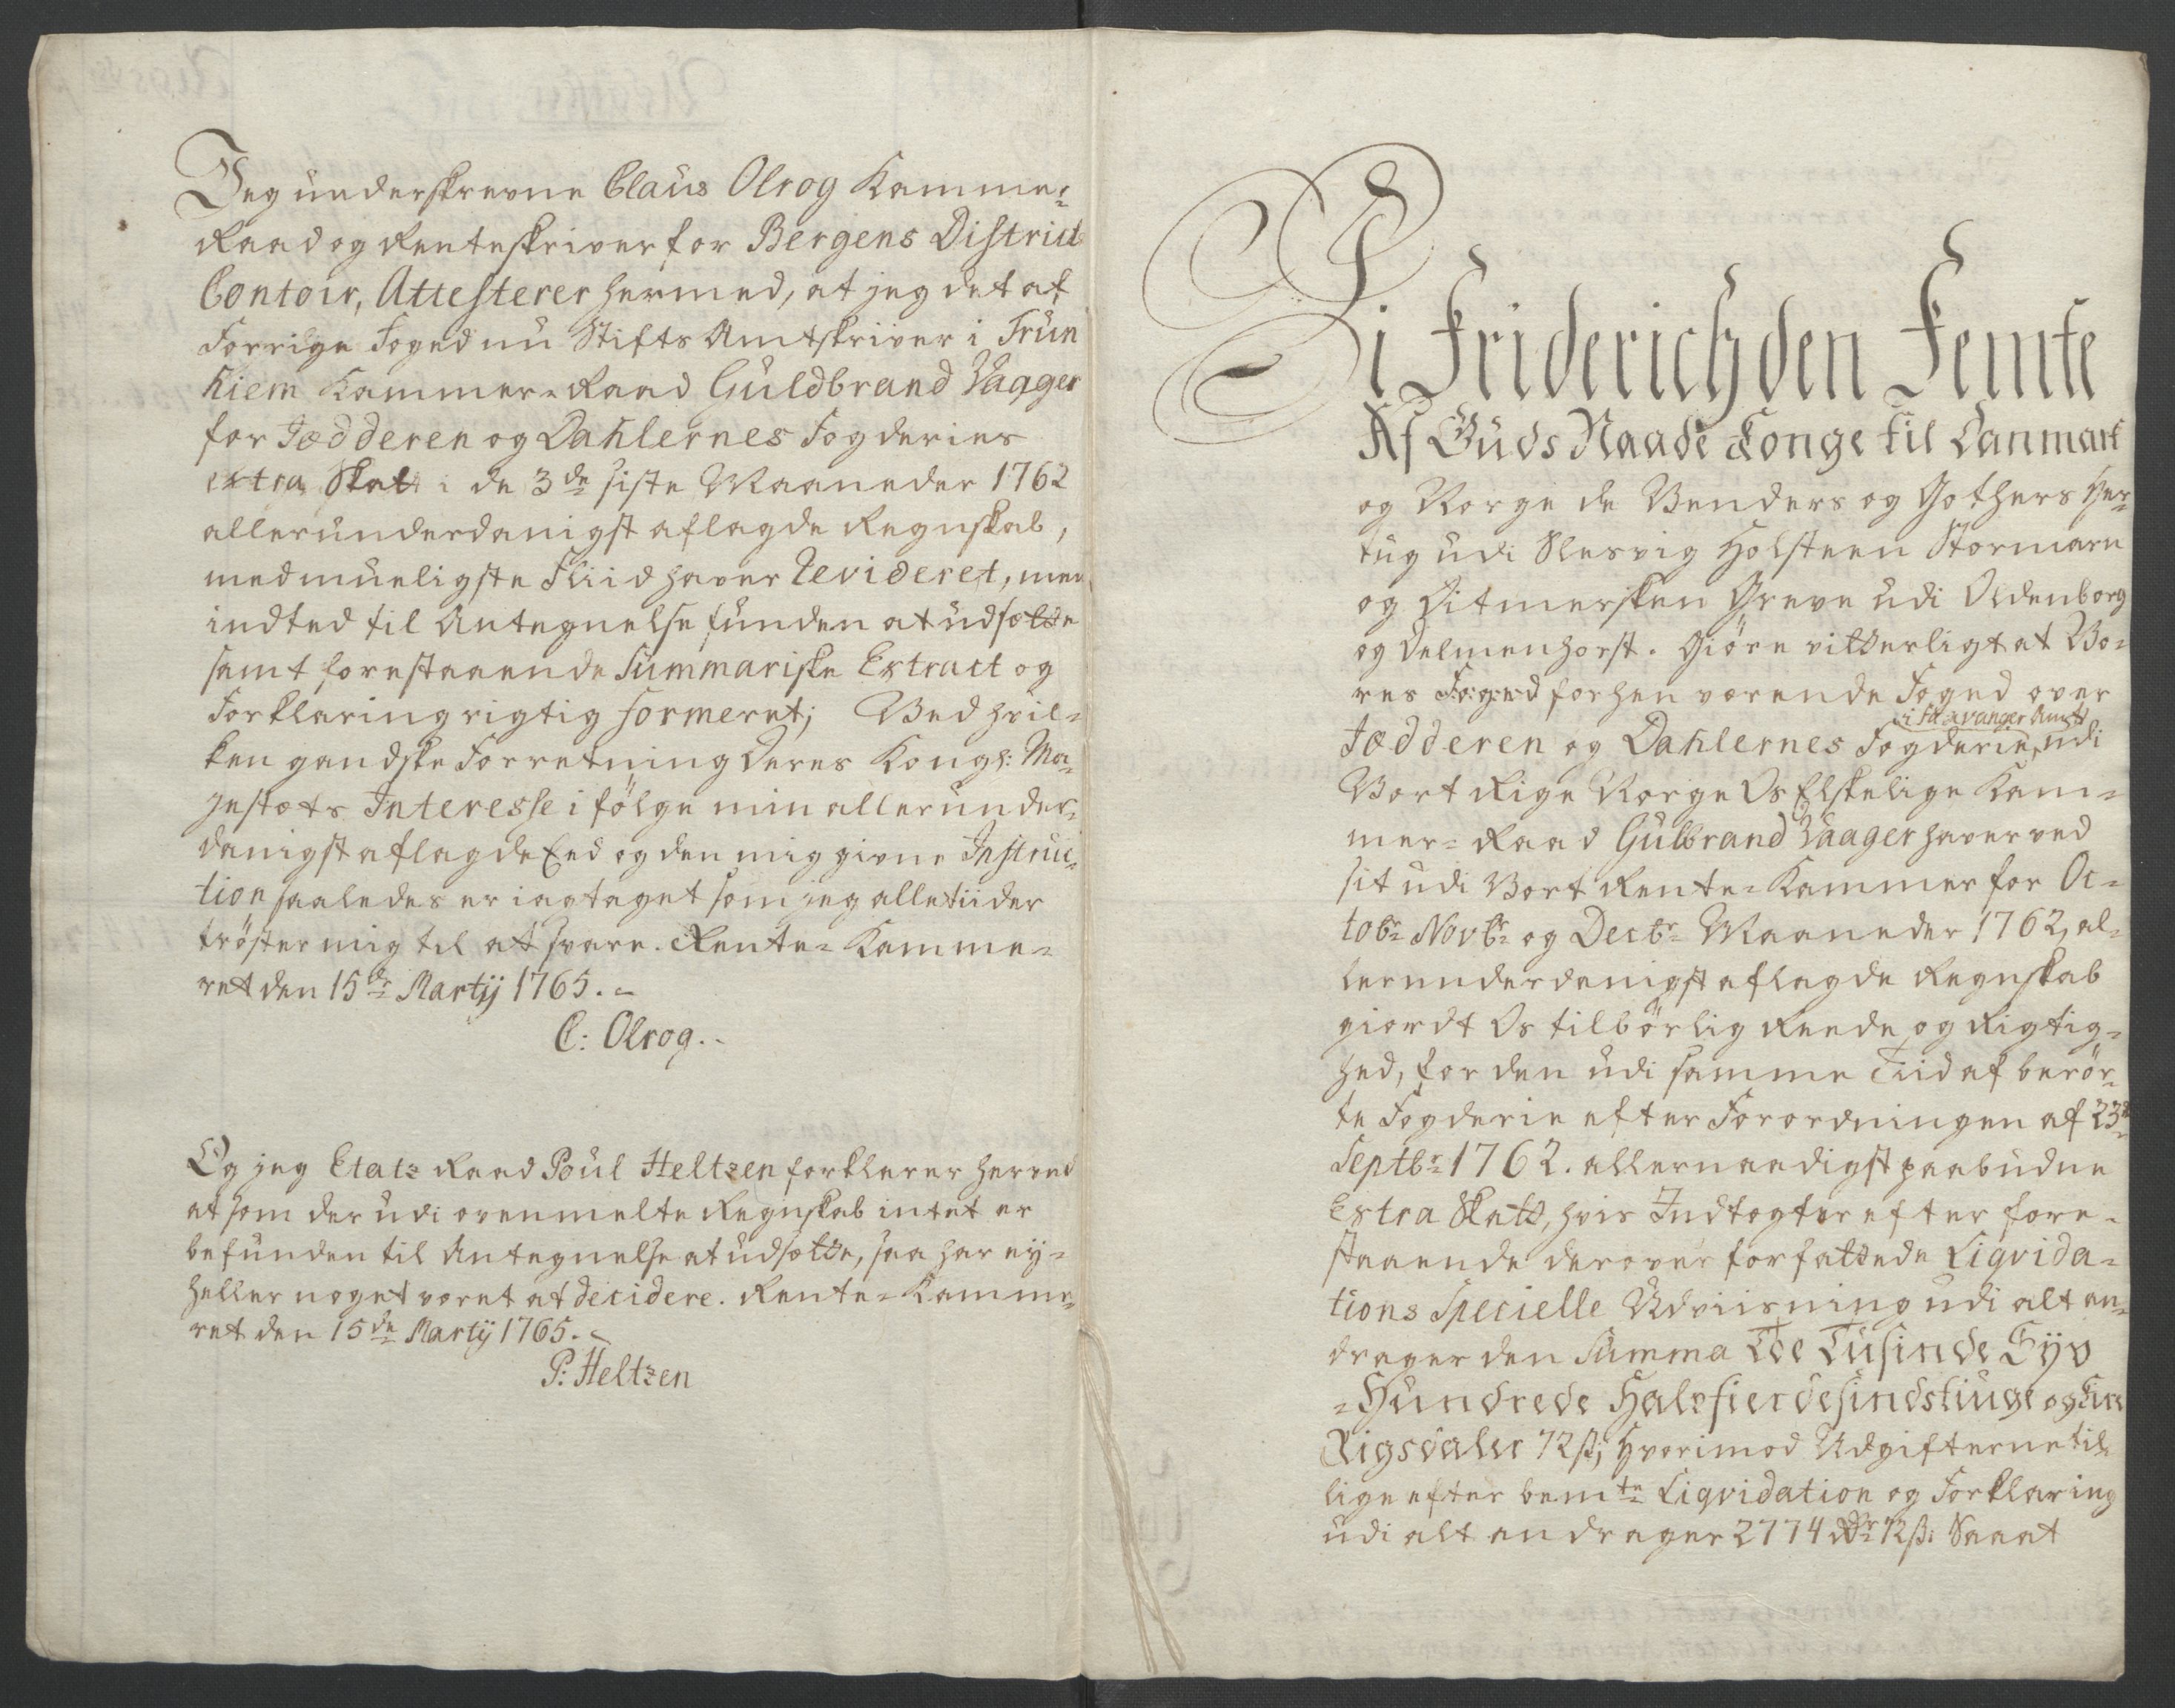 Jeg underskrevne Claus Olrog Kamme-
Raad og Renteskriver for Bergens District
Contoir, Attesterer hermed, at jeg det af
Forrige Foged nu Stifts Amtskriver i Trun
hiem Kammer-Raad Guldbrand Vaager
for Jædderen og Dahlernes Fogderies
extra Skatt i de 3de siste Maaneder 1762
allerunderdanigst aflagde Regnskab,
med mueligste Fliid haver Revideret, men
indted til Antegnelse funden at udsætte
samt forestaaende Summariske Extract og
Forklaring rigtig formeret; Ved hvil-
ken gandske Forretning Deres Kongl: Ma-
jestæts Interesse i følge min allerunder-
danigst aflagde Eed og den mig givne Instruc-
tion saaledes er iagtaget som jeg alletiider
trøster mig til at svare. Rente-Kamme-
ret den 15de Martij 1765.-
C: Olrog.-
Og jeg Etatz Raad Poul Heltzen forklarer herved
at som der udi ovenmelte Regnskab intet er
befunden til Antegnelse at udsætte, saa har ey-
heller noget været at decidere. Rente-Kamme-
ret den 15de Martij 1765.-
P: Heltzen
Vi Friderich den Femte
Af Guds Naade Konge til Danmark
og Norge de Venders og Gothers Her-
tug udi Slesvig Holsteen Stormarn
og Ditmersken Greve udi Oldenborg
og Delmenhorst. Giøre vitterligt at Vo-
res Foged forhen værende Foged over
i Stavanger Amt
Jædderen og Dahlernes Fogderie, udi
Vort Rige Norge Os Elskelige Kam-
mer-Raad Gulbrand Vaager haver ved
sit udi Vort Rente-Kammer for Oc-
tobr. Novbr. og Decbr. Maaneder 1762, al-
lerunderdanigst aflagde Regnskab
giordt Os tilbørlig Reede og Rigtig-
hed, for den udi samme Tiid af berør-
te Fogderie efter Forordningen af 23de
Septbr. 1762. allernaadigst paabudne
Extra Skatt, hvis Indtægter efter fore-
staaende derover forfattede Liqvida-
tions Specielle Udviisning udi alt an-
drager den Summa Toe Tusinde Syv
-Hundrede Halvfierdesindstiuge og Fire
Rigsdaler 72 ß; Hvorimod Udgifterne til-
lige efter bemte Liqvidation og Forklaring
udi alt andrager 2774 Rdr 72 ß: Saaat